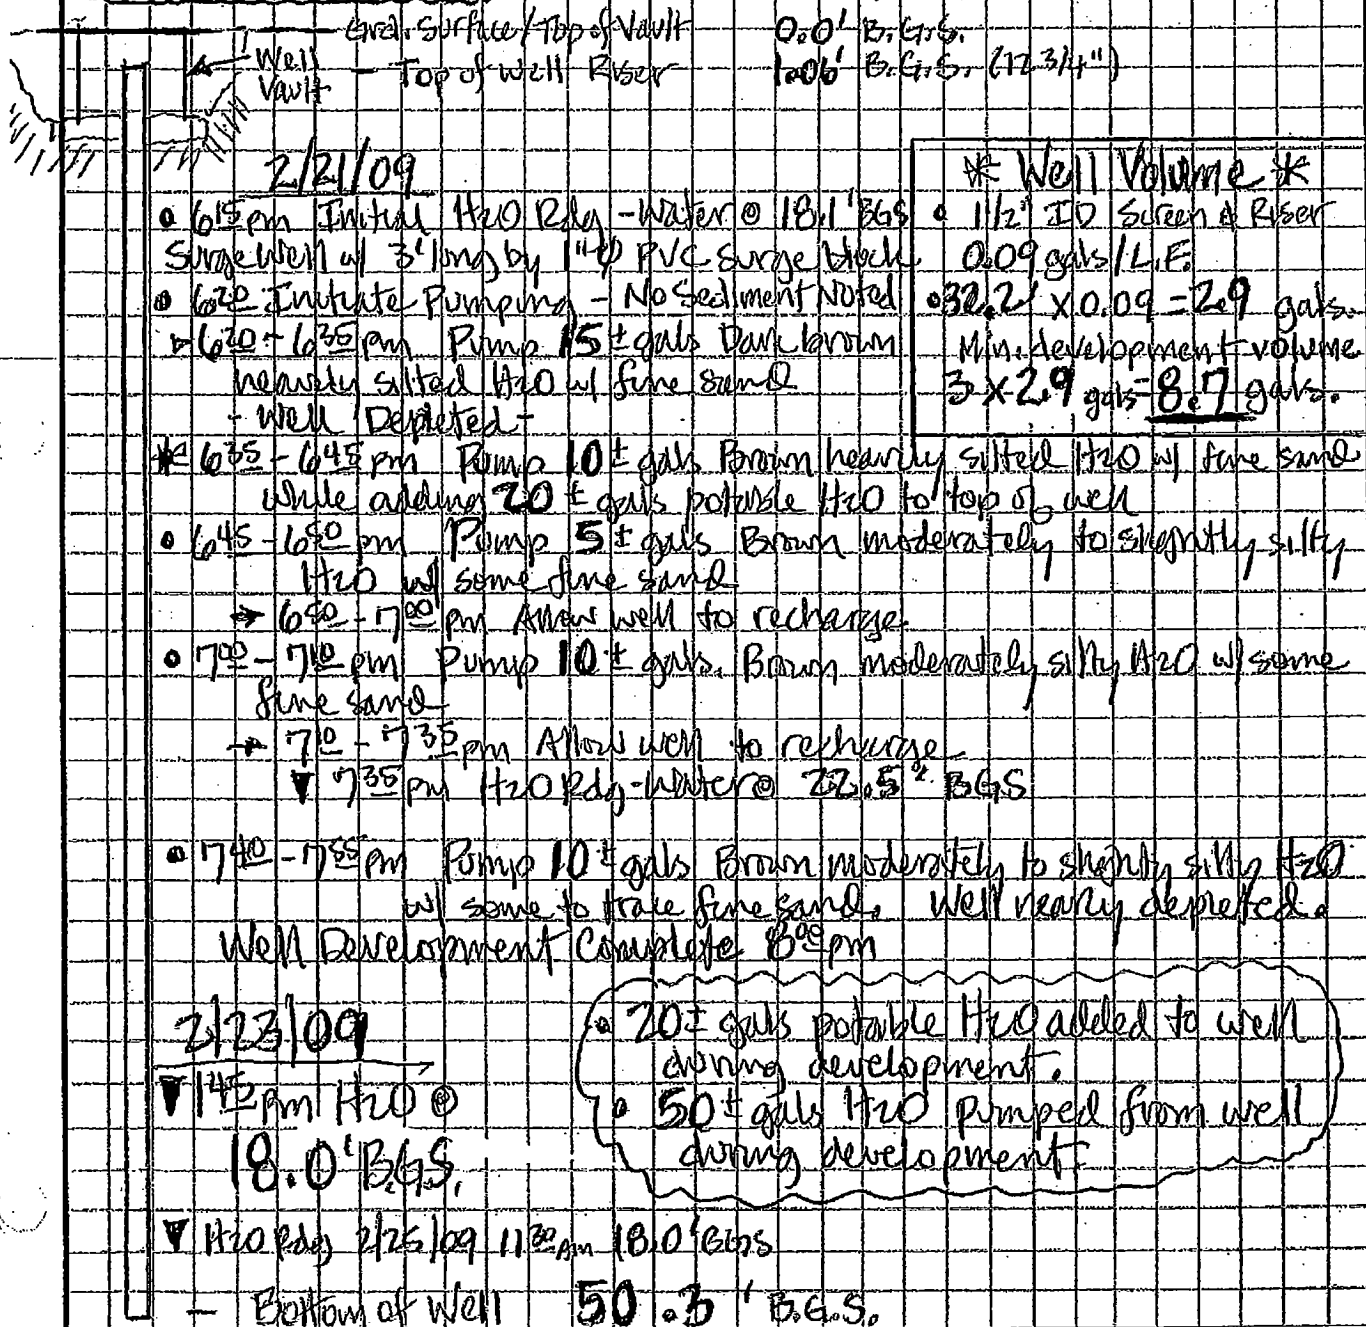 Grd. Surface/Top of Vault 0.0' B.G.S.
Well Vault
- Top of Well Riser 1.06' B.G.S. (12 3/4")
2/21/09
• 6 15 pm Initial H2O Rdg - Water @ 18.1' BGS
Surge Well w/ 3' long by 1"ϕ PVC surge block
• 6 20 Initiate Pumping - No Sediment Noted
▹ 6 20 - 6 35 pm Pump 15 ± gals Dark brown
heavily silted H2O w/ fine sand
- Well Depleted -
* Well Volume *
• 1 1/2" ID Screen & Riser
0.09 gals/L.F.
• 32.2' x 0.09 = 2.9 gals.
Min. development volume
3 x 2.9 gals = 8.7 gals.
* 6 35 - 6 45 pm Pump 10 ± gals Brown heavily silted H2O w/ fine sand
while adding 20 ± gals potable H2O to top of well
• 6 45 - 6 50 pm Pump 5 ± gals Brown moderately to slightly silty
H2O w/ some fine sand
→ 6 50 - 7 00 pm Allow well to recharge
• 7 00 - 7 10 pm Pump 10 ± gals. Brown moderately silty H2O w/ some
fine sand
→ 7 10 - 7 35 pm Allow well to recharge
▼ 7 35 pm H2O Rdg - Water @ 22.5' BGS
• 7 40 - 7 55 pm Pump 10 ± gals Brown moderately to slightly silty H2O
w/ some to trace fine sand. Well nearly depleted.
Well Development Complete 8 00 pm
2/23/09
▼ 1 45 pm H2O @
18.0' B.G.S.
• 20 ± gals potable H2O added to well
during development.
• 50 ± gals H2O pumped from well
during development.
▼ H2O Rdg 2/25/09 11 30 am 18.0' BGS
- Bottom of Well 50.3' B.G.S.